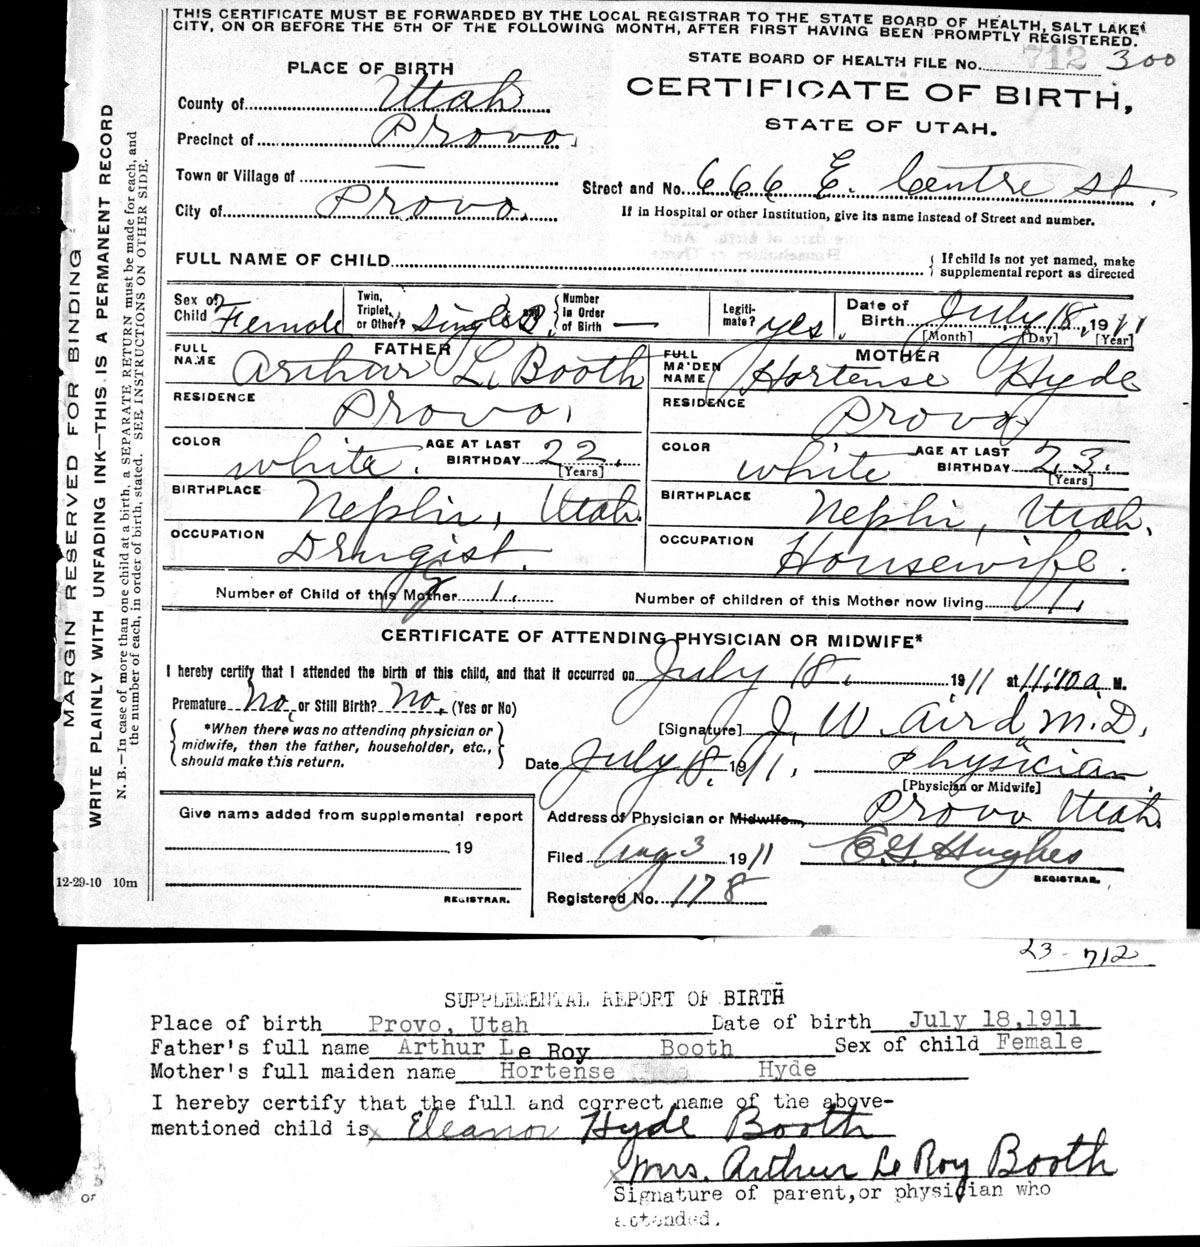 THIS CERTIFICATE MUST BE FORWARDED BY THE LOCAL REGISTRAR TO THE STATE BOARD OF HEALTH, SALT LAKE
CITY, ON OR BEFORE THE 5TH OF THE FOLLOWING MONTH, AFTER FIRST HAVING BEEN PROMPTLY REGISTERED.
STATE BOARD OF HEALTH FILE No. 712 300
PLACE OF BIRTH
CERTIFICATE OF BIRTH,
STATE OF UTAH.
County of Utah
Precinct of Provo
Town or Village of —
Street and No. 666 E. Centre st.
City of Provo.
If in Hospital or other Institution, give its name instead of Street and number.
FULL NAME OF CHILD
If child is not yet named, make
supplemental report as directed
Sex of Child Female
Twin, Triplet, or Other? Single
Number in Order of Birth —
Legiti-mate? yes.
Date of Birth July 18, 1911
[Month] [Day] [Year]
FATHER
MOTHER
FULL NAME Arthur L. Booth
FULL MAIDEN NAME Hortense Hyde
RESIDENCE Provo.
RESIDENCE Provo.
COLOR white. AGE AT LAST BIRTHDAY 22. [Years]
COLOR white AGE AT LAST BIRTHDAY 23. [Years]
BIRTHPLACE Nephi, Utah.
BIRTHPLACE Nephi, Utah.
OCCUPATION Drugist.
OCCUPATION Housewife.
Number of Child of this Mother 1.
Number of children of this Mother now living 1.
CERTIFICATE OF ATTENDING PHYSICIAN OR MIDWIFE*
I hereby certify that I attended the birth of this child, and that it occurred on July 18. 1911 at 11:10 a. M.
Premature No, or Still Birth? No. (Yes or No)
*When there was no attending physician or
midwife, then the father, householder, etc.,
should make this return.
[Signature] J. W. Aird, M.D.
Date July 18. 1911. Physician
[Physician or Midwife]
Address of Physician or Midwife, Provo Utah.
Give name added from supplemental report
19
REGISTRAR.
Filed Aug 3 1911 E.G. Hughes
REGISTRAR.
Registered No. 178
12-29-10 10m
MARGIN RESERVED FOR BINDING
WRITE PLAINLY WITH UNFADING INK—THIS IS A PERMANENT RECORD
N. B.—In case of more than one child at a birth, a SEPARATE RETURN must be made for each, and
the number of each, in order of birth, stated. SEE INSTRUCTIONS ON OTHER SIDE.
23-712
SUPPLEMENTAL REPORT OF BIRTH
Place of birth Provo, Utah Date of birth July 18,1911
Father's full name Arthur Le Roy Booth Sex of child Female
Mother's full maiden name Hortense Hyde
I hereby certify that the full and correct name of the above-
mentioned child is x Eleanor Hyde Booth
x Mrs. Arthur Le Roy Booth
Signature of parent,or physician who
attended.